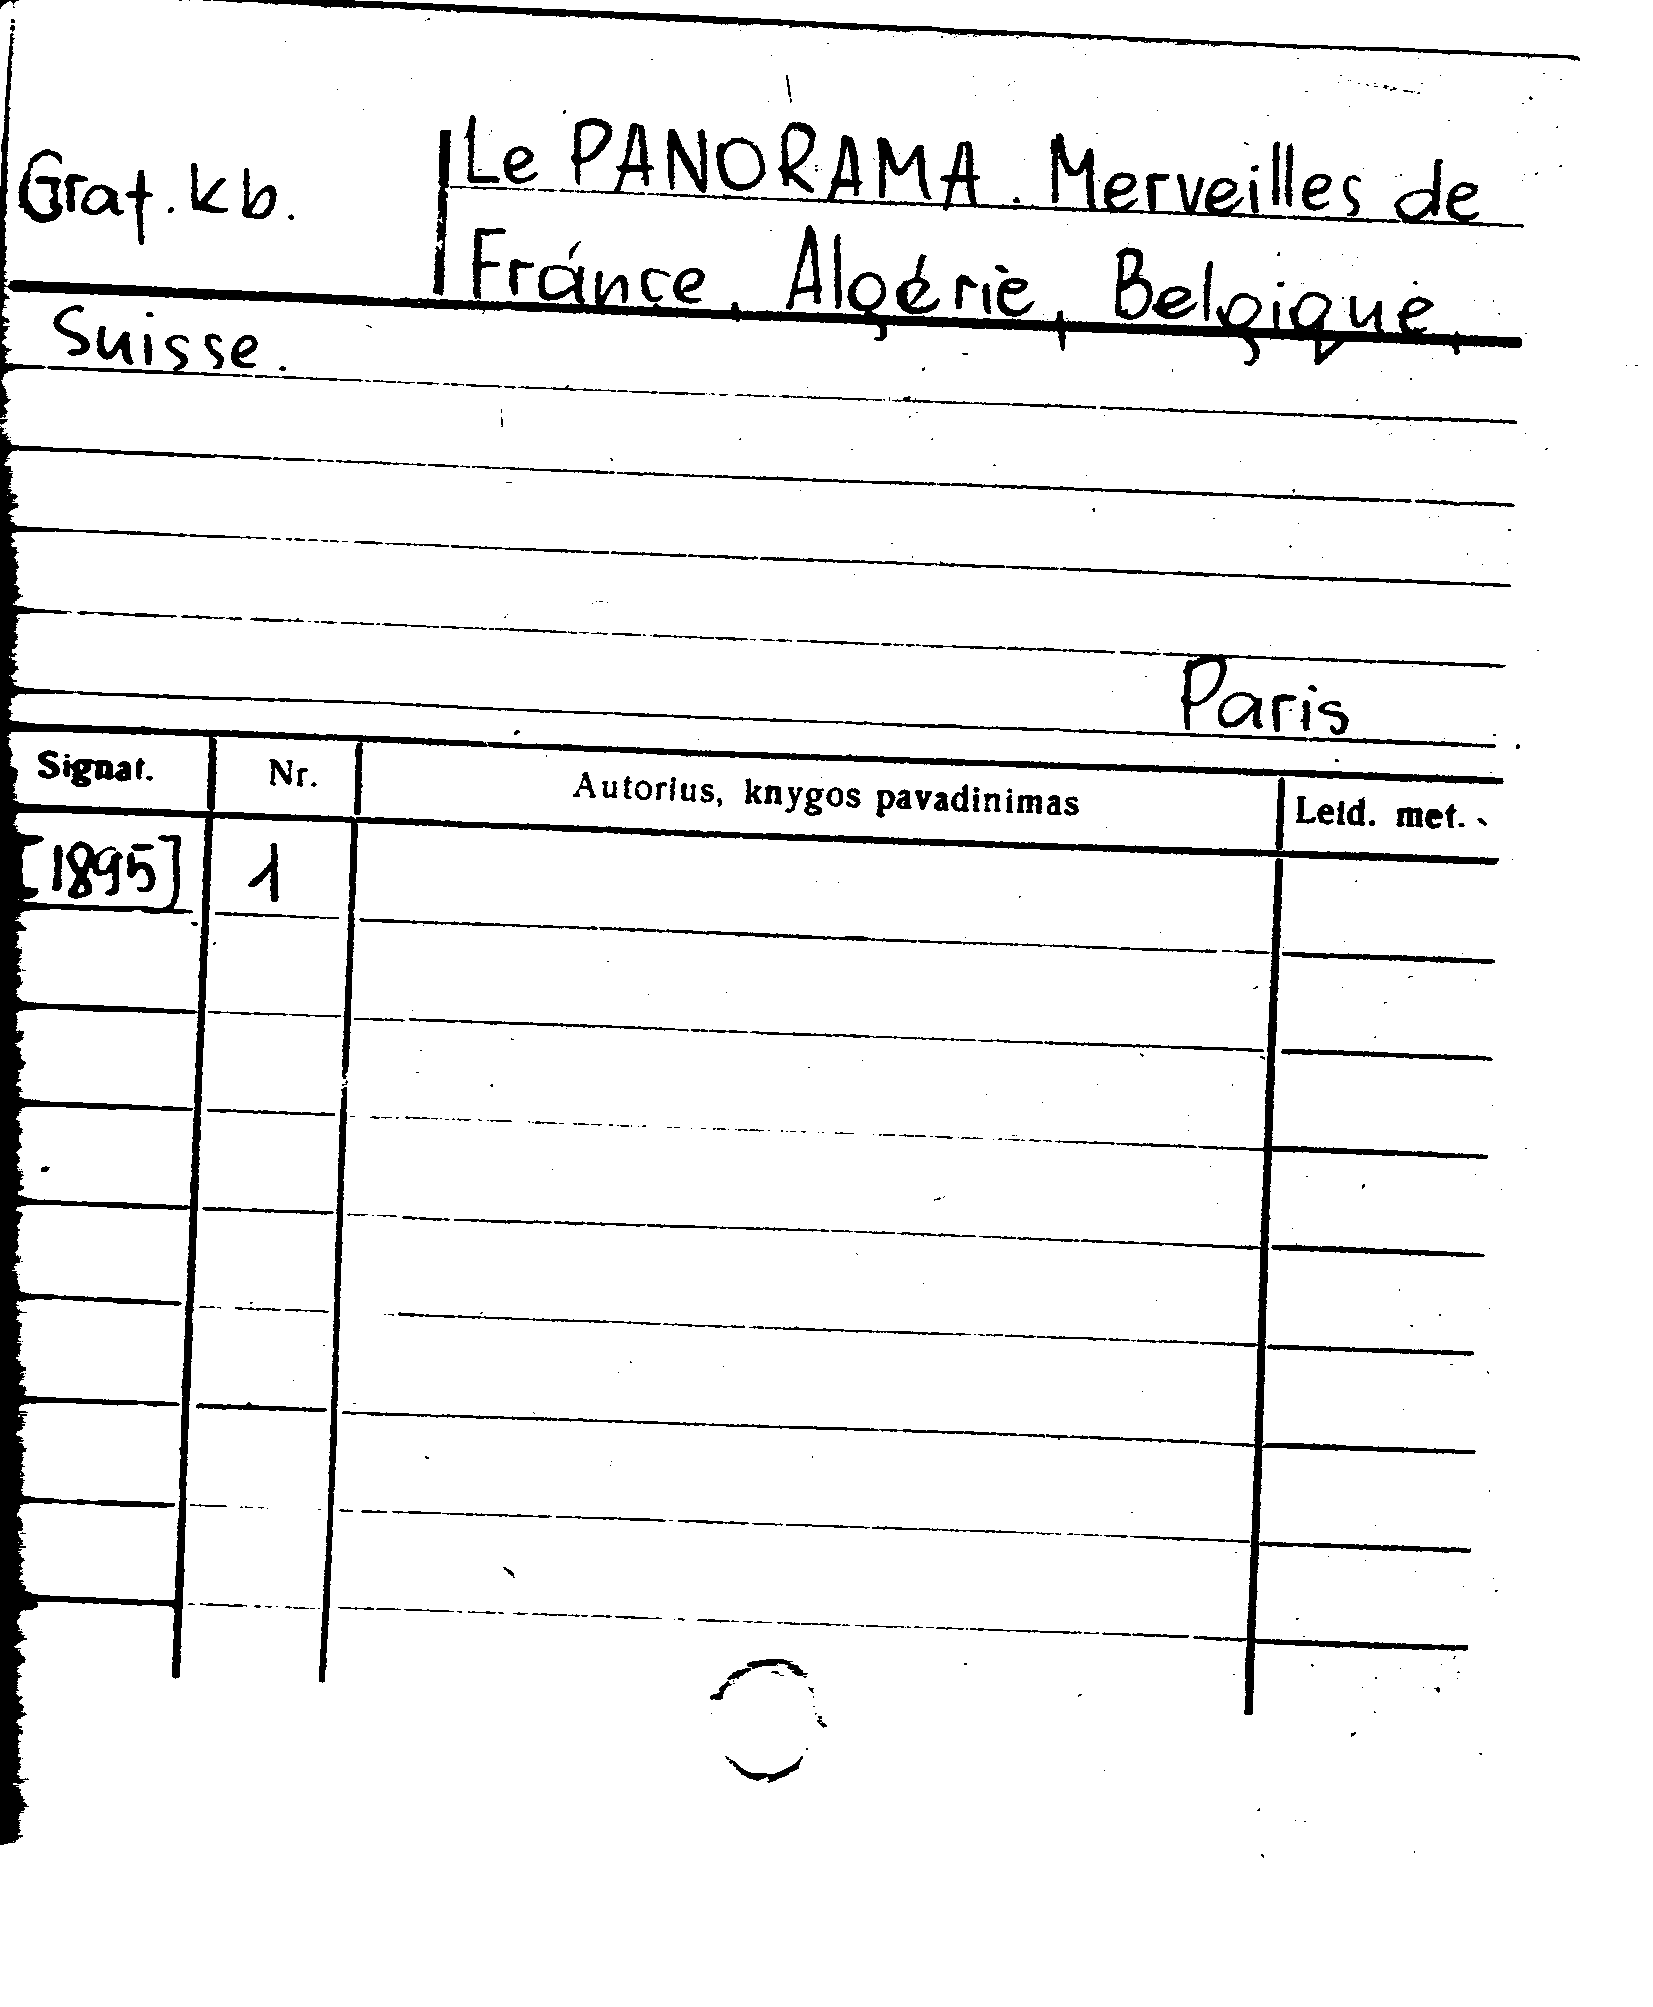 Graf. kb.
Le PANORAMA. Merveilles de
France, Algérie, Belgique,
Suisse.
Paris
Signat. Nr. Autorius, knygos pavadinimas Leid. met.
[1895] 1